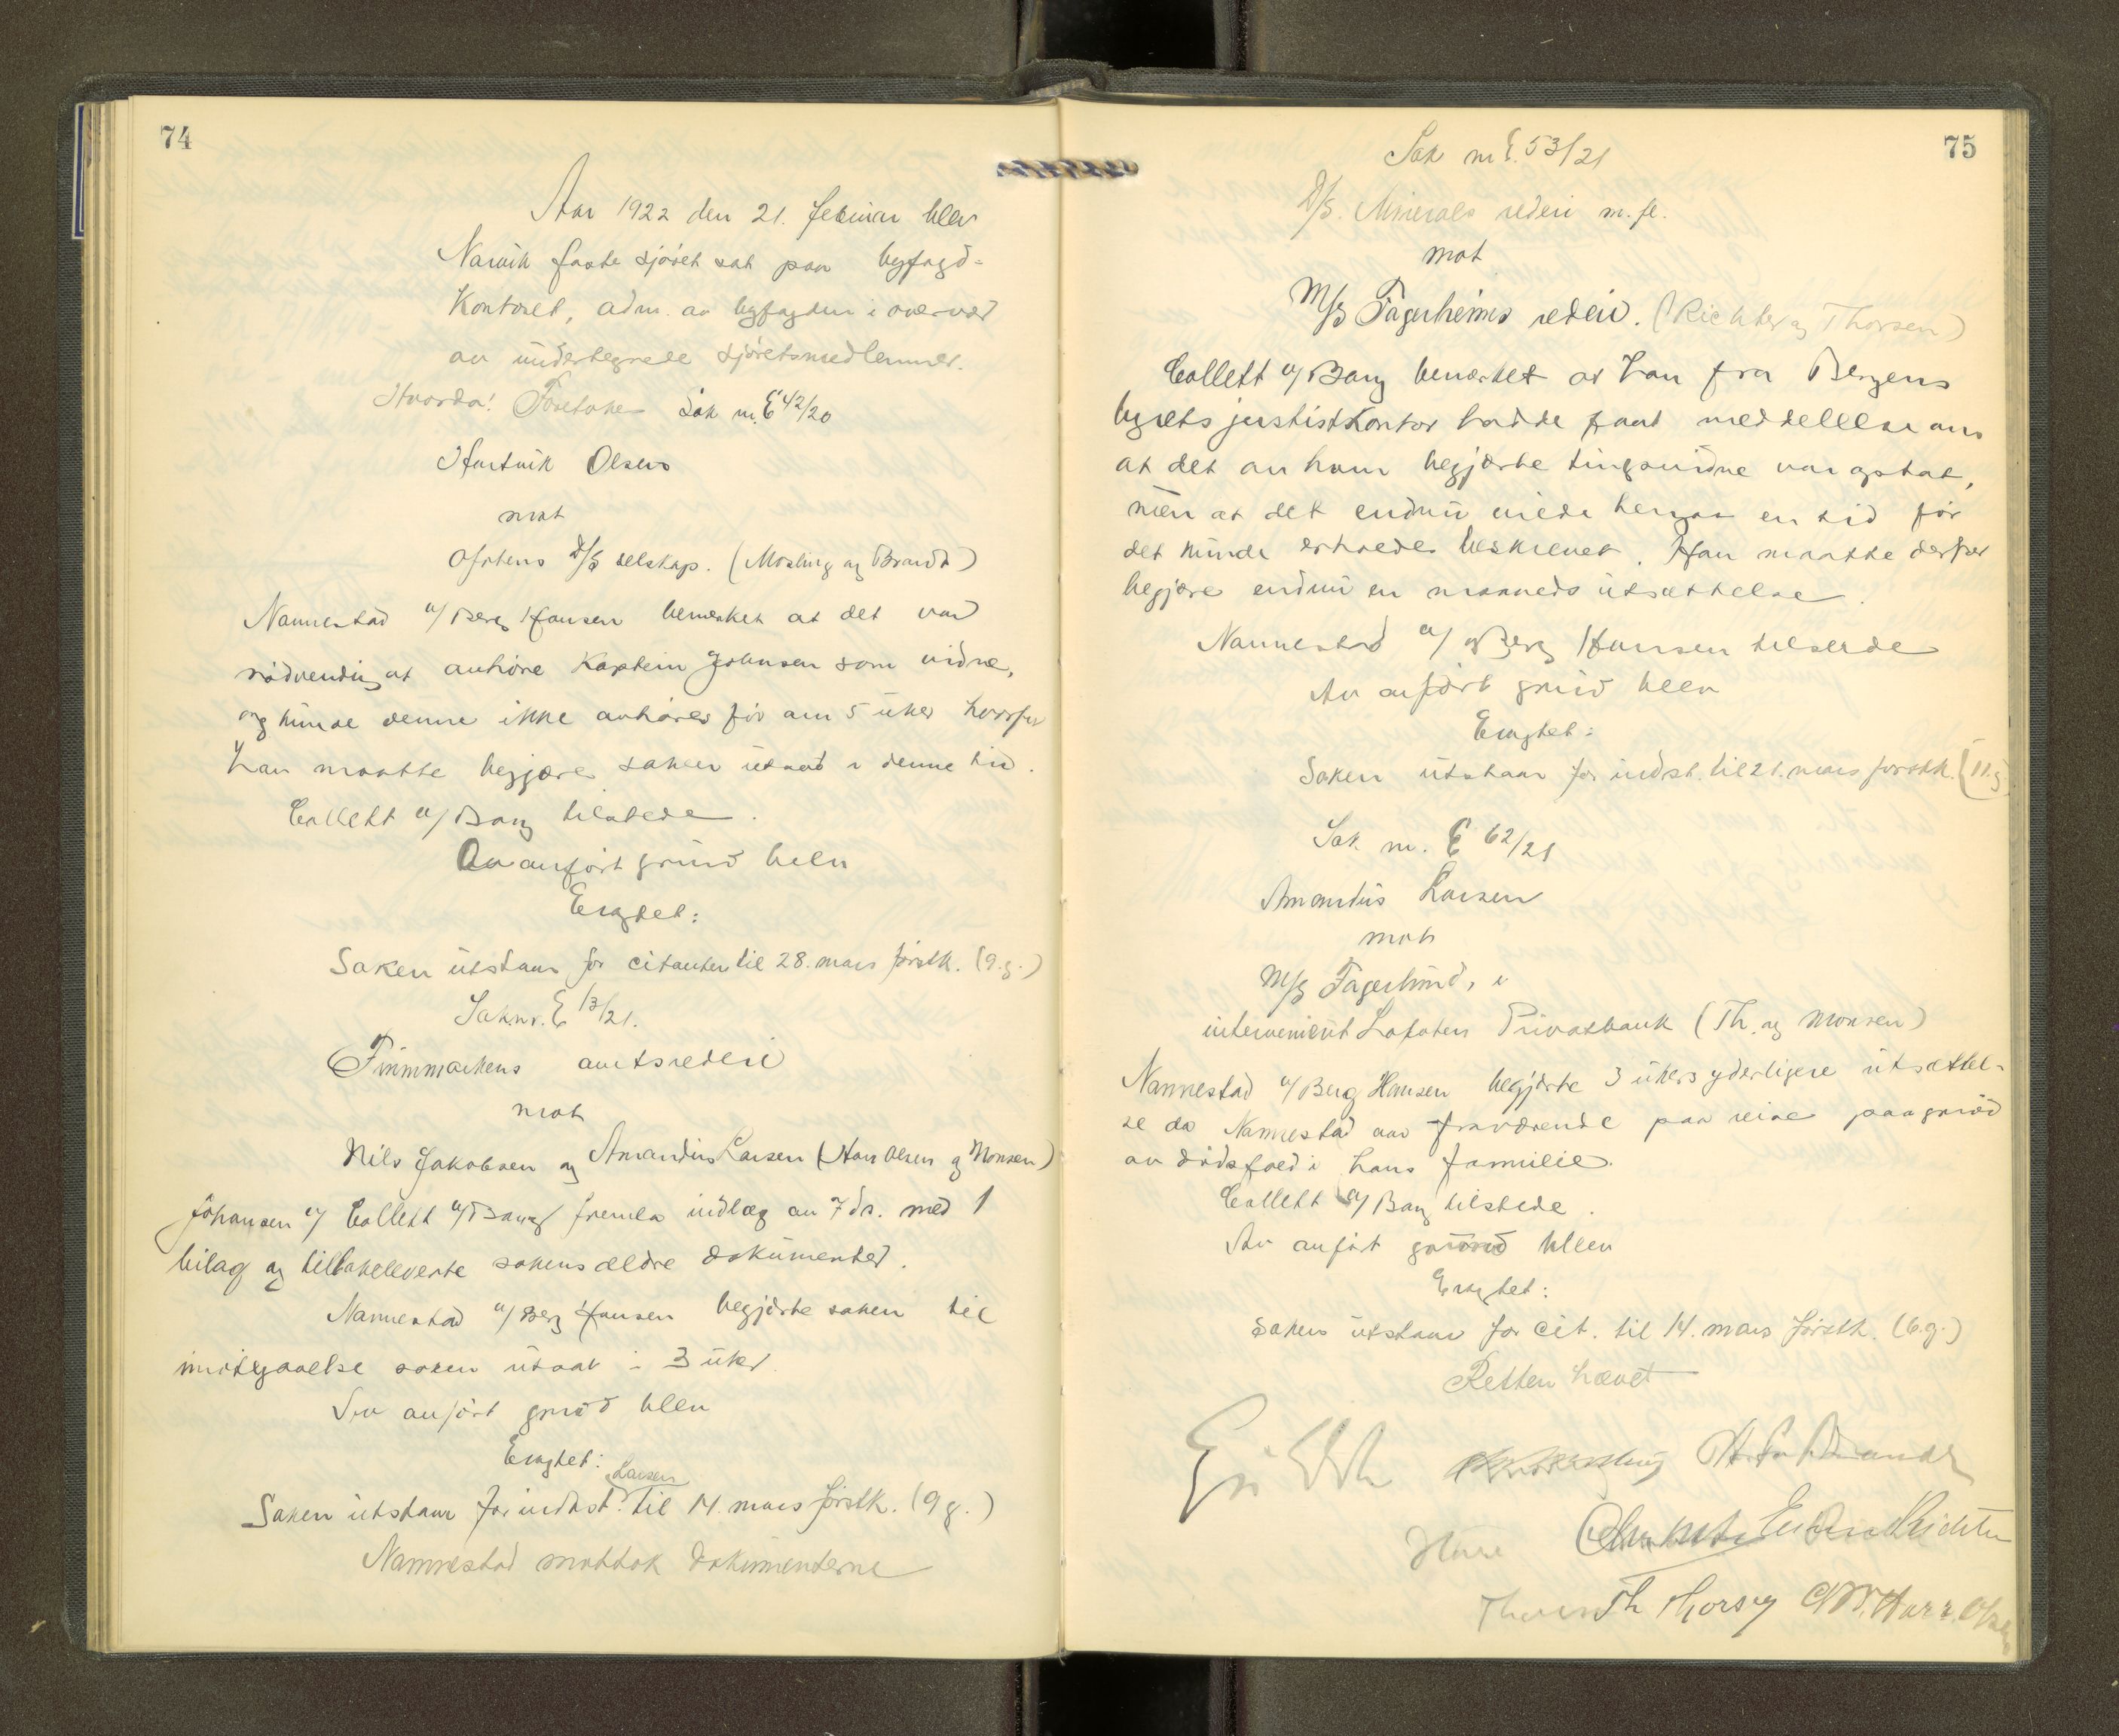 74
Aar 1922 den 21. februar blev
Narvik faste sjøret sat paa byfogd-
kontoret, adm. av byfogden i overvær
av undertegnede sjøretsmedlemmer.
Hvorda! Foretokes Sak nr. E 42/20
Hartvik Olsen
mot
Ofotens D/S selskap. (Mosling og Brandt)
Nannestad v/ Berg Hansen bemerket at det var
nødvendig at anhøre Kaptein Johnsen som vidne,
og kunde denne ikke anhøres før om 5 uker hvorfor
han maatte begjære saken utsat i denne tid.
Collett v/ Bang tilstede.
Av anført grund blev
Eragtet:
Saken utstaar for citanten til 28. mars førstk. (9.g.)
Sak nr. E 13/21.
Finnmarkens amtsrederi
mot
Nils Jakobsen og Amandus Larsen (Harr Olsen og Monsen)
Johansen v/ Collett v/ Bang fremla indlæg av 7 ds. med 1
bilag og tilbakeleverte sakens ældre dokumenter.
Nannestad v/ Berg Hansen begjærte saken til
imøtegaaelse saken utsat i 3 uker.
Av anført grund blev
Eragtet:
Larsen
Saken utstaar for indst. til 14. mars førstk. (9 g.)
Nannestad mottok dokumenterne
75
Sak nr. E. 53/21
D/S. Minerals rederi m. fl.
mot
M/S Fagerheims rederi. (Richter og Thorsen)
Collett v/ Bang bemerket at han fra Bergens
byrets justiskontor hadde faat meddelelse om
at det av ham begjærte tingsvidne var optat,
men at det endnu vilde hengaa en tid før
det kunde erholdes beskrevet. Han maatte derfor
begjære endnu en maaneds utsættelse.
Nannestad v/ Berg Hansen tilstede
Av anført grund blev
Eragtet:
Saken utstaar for indst. til 21. mars førstk. (11.g)
Sak nr. E 62/21
Amandus Larsen
mot
M/S Fagerlund, i
intervenient Lofoten Privatbank (Th. og Monsen)
Nannestad v/ Berg Hansen begjærte 3 ukers yderligere utsættel-
se da Nannestad var fraværende paa reise paa grund
av dødsfald i hans familie.
Collett v/ Bang tilstede.
Av anført grund blev
Eragtet:
Saken utstaar for cit. til 14. mars førstk. (6.g.)
Retten hævet
Richter
Th Thorsen Harr. Olsen